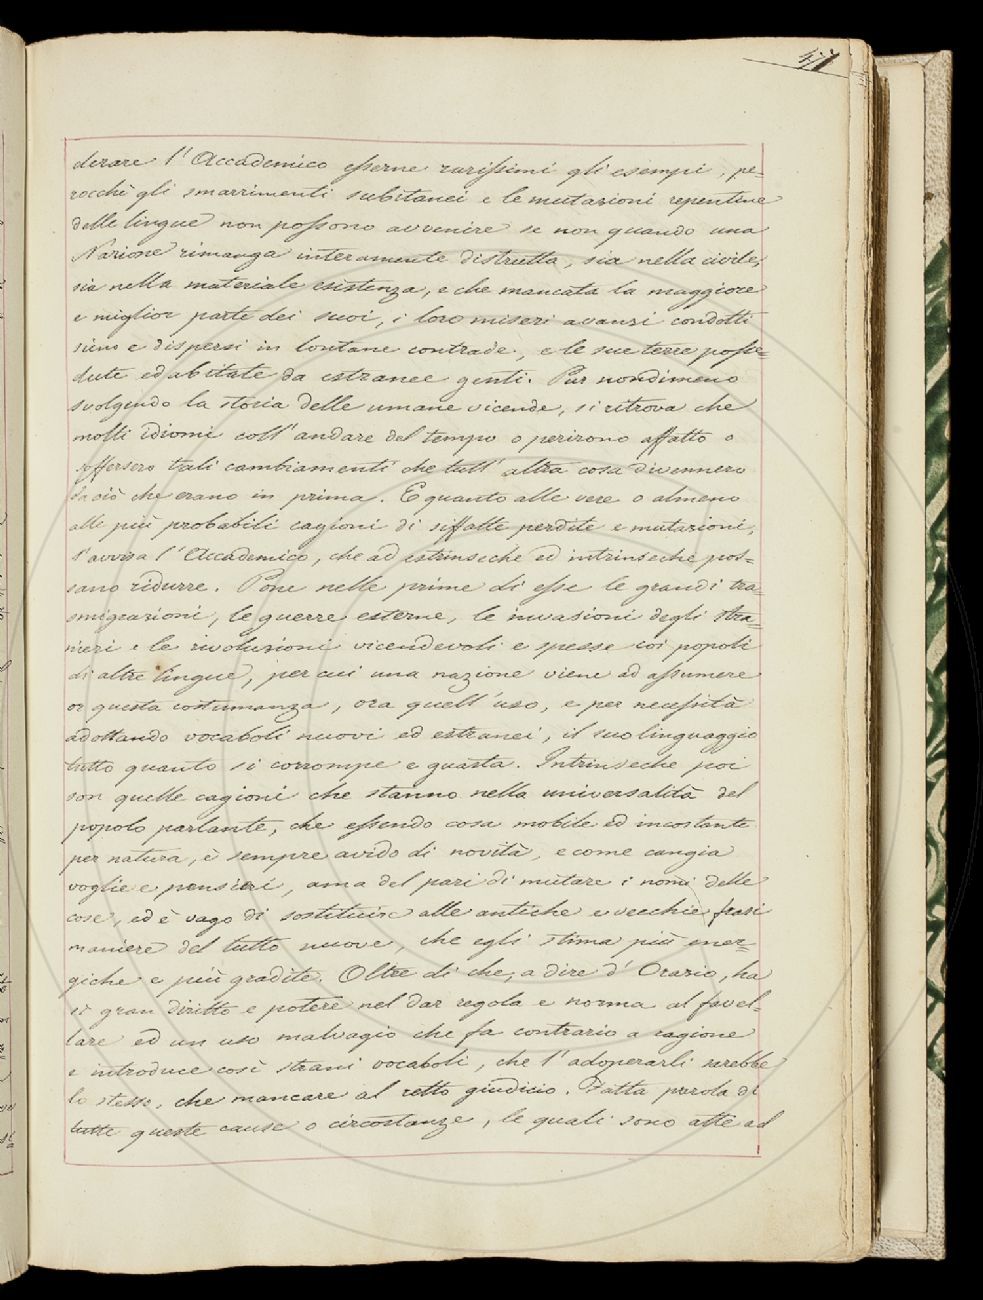 47
derare l'Accademico esserne rarissimi gli esempi, pe=
rocchè gli smarrimenti subitanei e le mutazioni repentine
delle lingue non possono avvenire se non quando una
Nazione rimanga interamente distrutta, sia nella civile,
sia nella materiale esistenza, e che mancata la maggiore
e miglior parte dei suoi, i loro miseri avanzi condotti
sieno e dispersi in lontane contrade, e le sue terre posse=
dute ed abitate da estranee genti. Pur nondimeno
svolgendo la storia delle umane vicende, si ritrova che
molti idiomi coll'andare del tempo o perirono affatto o
soffersero tali cambiamenti che tutt'altra cosa divennero
da ciò che erano in prima. E quanto alle vere o almeno
alle più probabili cagioni di siffatte perdite e mutazioni,
s'avvisa l'Accademico, che ad estrinseche ed intrinseche pos=
sano ridurre. Pone nelle prime di esse le grandi tra=
smigrazioni, le guerre esterne, le invasioni degli stra=
nieri e le rivoluzioni vicendevoli e spesse coi popoli
di altre lingue, per cui una nazione viene ad assumere
or questa costumanza, ora quell'uso, e per necessità
adottando vocaboli nuovi ed estranei, il suo linguaggio
tutto quanto si corrompe e guasta. Intrinseche poi
son quelle cagioni che stanno nella universalità del
popolo parlante, che essendo cosa mobile ed incostante
per natura, è sempre avido di novità, e come cangia
voglie e pensieri, ama del pari di mutare i nomi delle
cose, ed è vago di sostituire alle antiche e vecchie frasi
maniere del tutto nuove, che egli stima più ener=
giche e più gradite. Oltre di che, a dire d'Orazio, ha
sì gran diritto e potere nel dar regola e norma al favel=
lare ed un uso malvagio che fa contrario a ragione
e introduce così strani vocaboli, che l'adoperarli sarebbe
lo stesso, che mancare al retto giudicio. Fatta parola di
tutte queste cause o circostanze, le quali sono atte ad